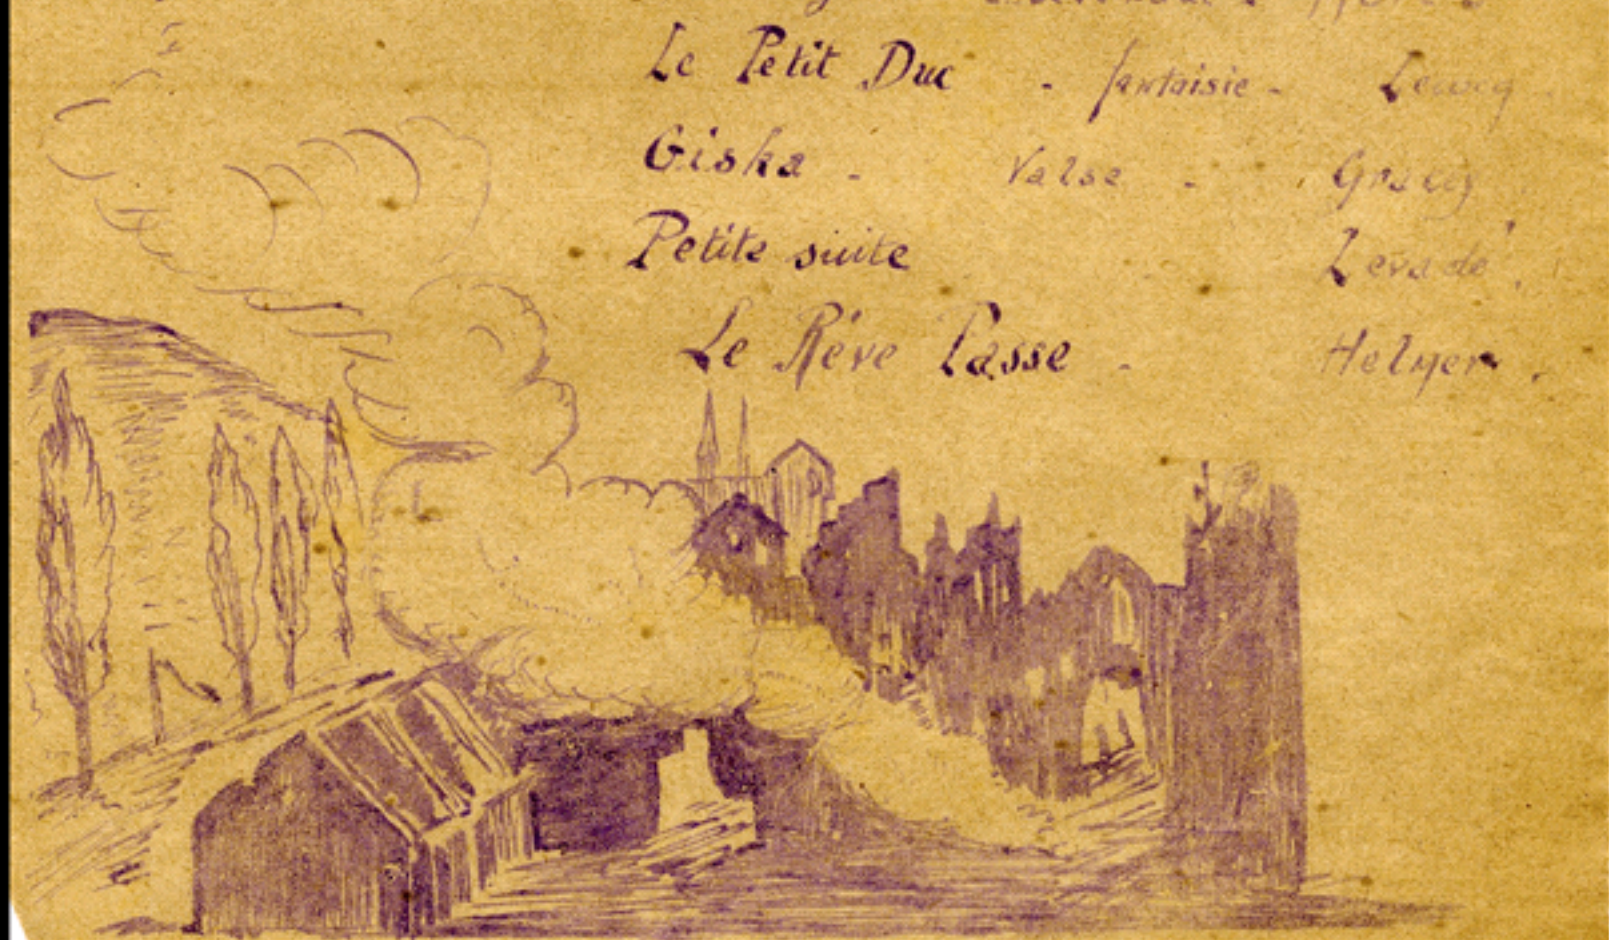 Le Petit Duc - fantaisie - Lecocq
Giska - Valse - Gracey
Petite suite Levadé
Le Rêve Passe - Helmer.